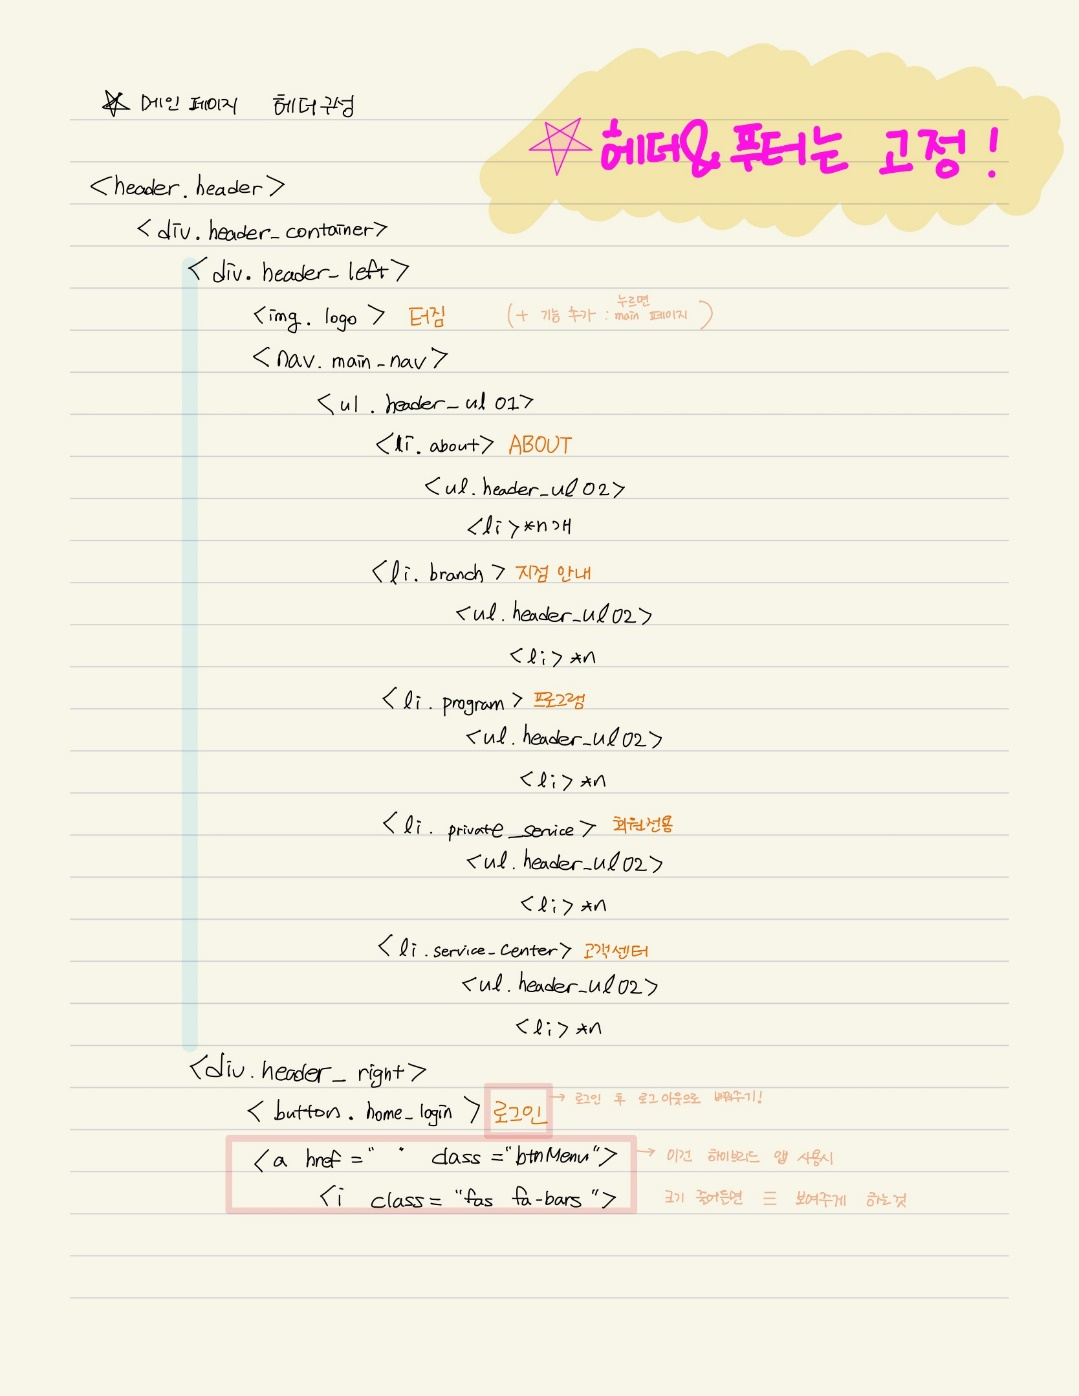 ☆ 메인 페이지 헤더구성
☆ 헤더& 푸터는 고정!
<header.header>
<div.header_container>
<div.header_left>
<img.logo> 터짐 (+ 기능 추가 : 누르면 main 페이지)
<nav.main_nav>
<ul.header_ul 01>
<li.about> ABOUT
<ul.header_ul 02>
<li>*n개
<li.branch> 지점 안내
<ul.header_ul 02>
<li>*n
<li.program> 프로그램
<ul.header_ul 02>
<li>*n
<li.private_service> 회원전용
<ul.header_ul 02>
<li>*n
<li.service_center> 고객센터
<ul.header_ul 02>
<li>*n
<div.header_right>
<button.home_login> 로그인 → 로그인 후 로그아웃으로 바꿔주기!
<a href=" " class="btnMenu"> → 이건 하이브리드 앱 사용시
<i class="fas fa-bars"> 크기 줄어들면 ☰ 보여주게 하는것